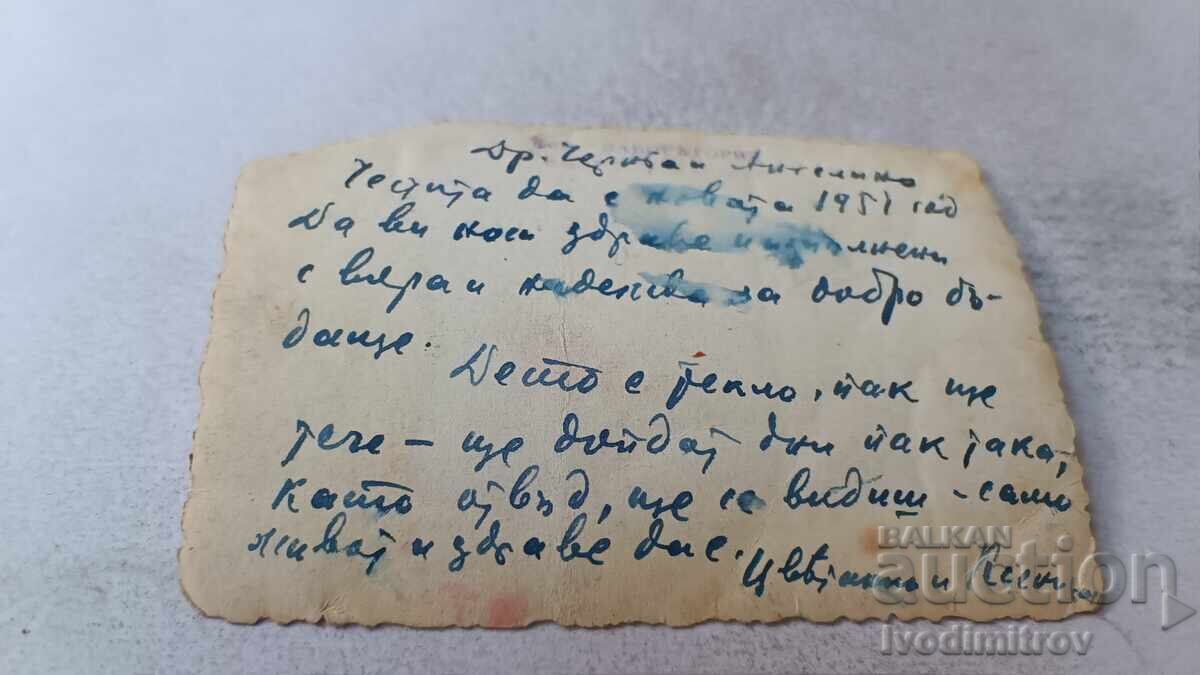 Др. и Ангелина
Честита да е новата 1951 год
Да ви носи здраве и
с вяра и надежда за добро бъ-
даще.
Дето е текло, пак ще
тече – ще дойдат дни пак така,
като отвъд, ще се видиш – само
живот и здраве да е.
и
BALKAN
auction
Ivodimitrov